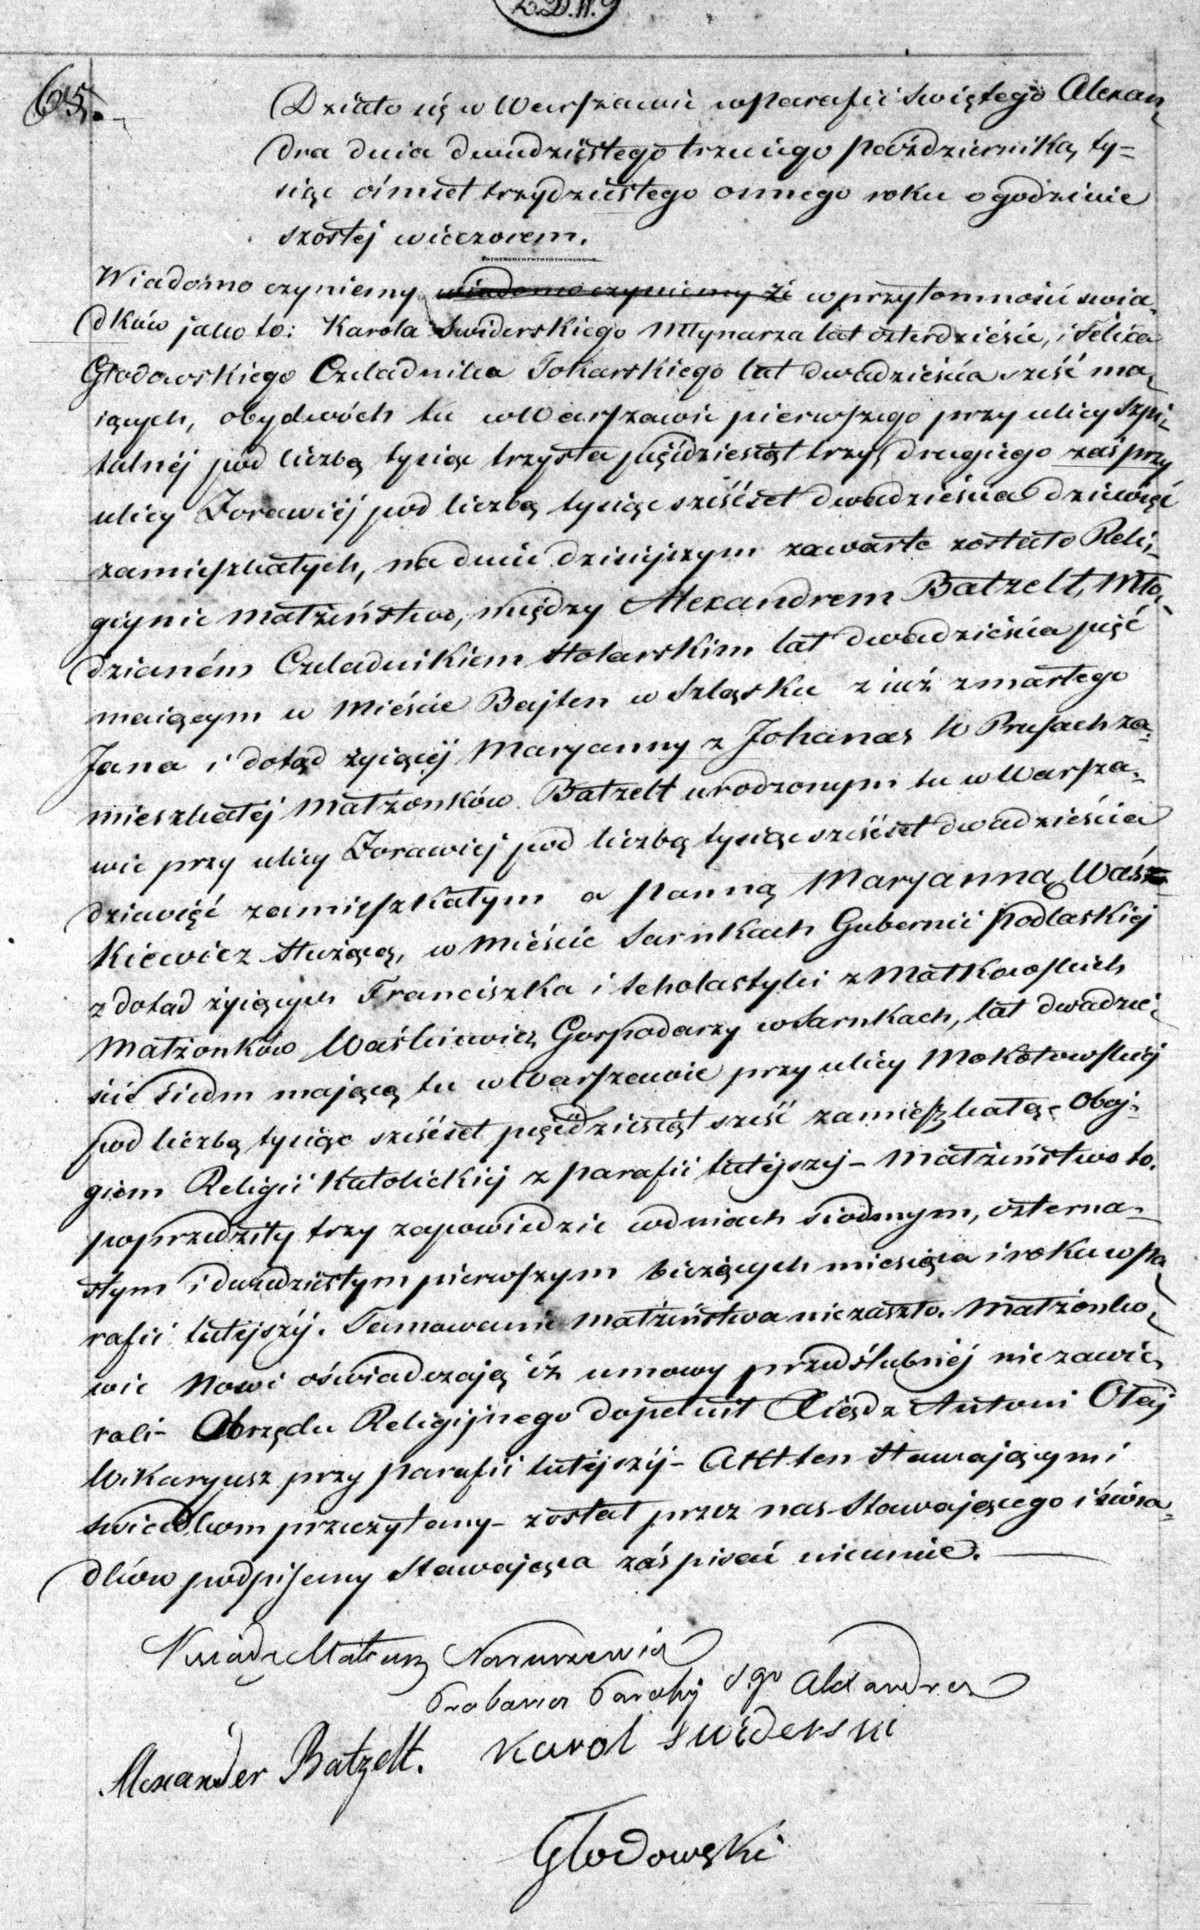 Z.D.W.
65.
Działo się w Warszawie w parafii Swiętego Alexan-
dra dnia dwudziestego trzeciego pażdziernika, ty-
siąc ośmset trzydziestego osmego roku o godzinie
szostej wieczorem.
Wiadomo czyniemy wiadomo czyniemy że w przytomności swia-
dków jako to: Karola Swiderskiego Młynarza lat czterdzieście, i Felixa
Głodowskiego Czeladnika Tokarskiego lat dwadzieścia sześć ma-
iących, obydwóch tu w Warszawie pierwszego przy ulicy Szpi-
talnéj pod liczbą tysiąc trzysta pięćdziesiąt trzy, drugiego zaś przy
ulicy Zorawiéj pod liczbą tysiąc sześćset dwadzieścia dziewięć
zamieszkałych, na dniu dzisiejszym zawarte zostało Reli-
gijnie Małżeństwo, między Alexandrem Batzelt, Mło-
dzianém Czeladnikiem Stolarskim lat dwadzieścia pięć
maiącym w Mieście Bajten w Szląsku z iuż zmarłego
Jana i dotąd żyiącéj Maryanny z Johanas w Prusach za-
mieszkałéj Małżonków Batzelt urodzonym tu w Warsza-
wie przy ulicy Zorawiej pod liczbą tysiąc sześćset dwadzieścia
dziewięć zamieszkałym a panną Maryanną Waś-
kiewicz służącą, w Mieście Sarnkach Gubernii Podlaskiéj
z dotąd żyiących Franciszka i Scholastyki z Małkowskich
Małżonków Waśkiewicz Gospodarzy w Sarnkach, lat dwadzie-
scie siedm mającą tu w Warszawie przy ulicy Mokotowskiéj
pod liczbą tysiąc sześćset pięćdziesiąt sześć zamieszkałą, oboj-
giem Religii Katolickiéj z parafii tutéjszej - Małżeństwo to
poprzedziły trzy zapowiedzie w dniach siodmym, czterna-
stym i dwudziestym pierwszym bieżących miesiąca i roku w pa-
rafii tutéjszéj. Tamowanie małżeństwa nie zaszło. Małżonko-
wie Nowi oświadczają iż umowy przedślubnéj nie zawie-
rali - Obrzędu Religijnego dopełnił Xiądz Antoni Otaj
Wikaryusz przy parafii tutéjszéj - Akt ten stawającym i
świadkom przeczytany - został przez nas stawającego i świa-
dków podpisany stawająca zaś pisać nieumie.
Ksiądz Mateusz
Proboszcz Parafij S.go Alexandra
Alexander Batzelt. Karol Swiderski
Głodowski